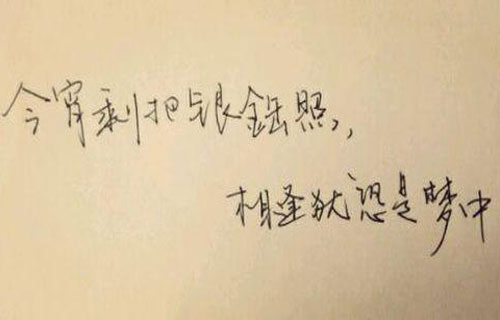 今宵剩把银缸照,,
相逢犹恐是梦中